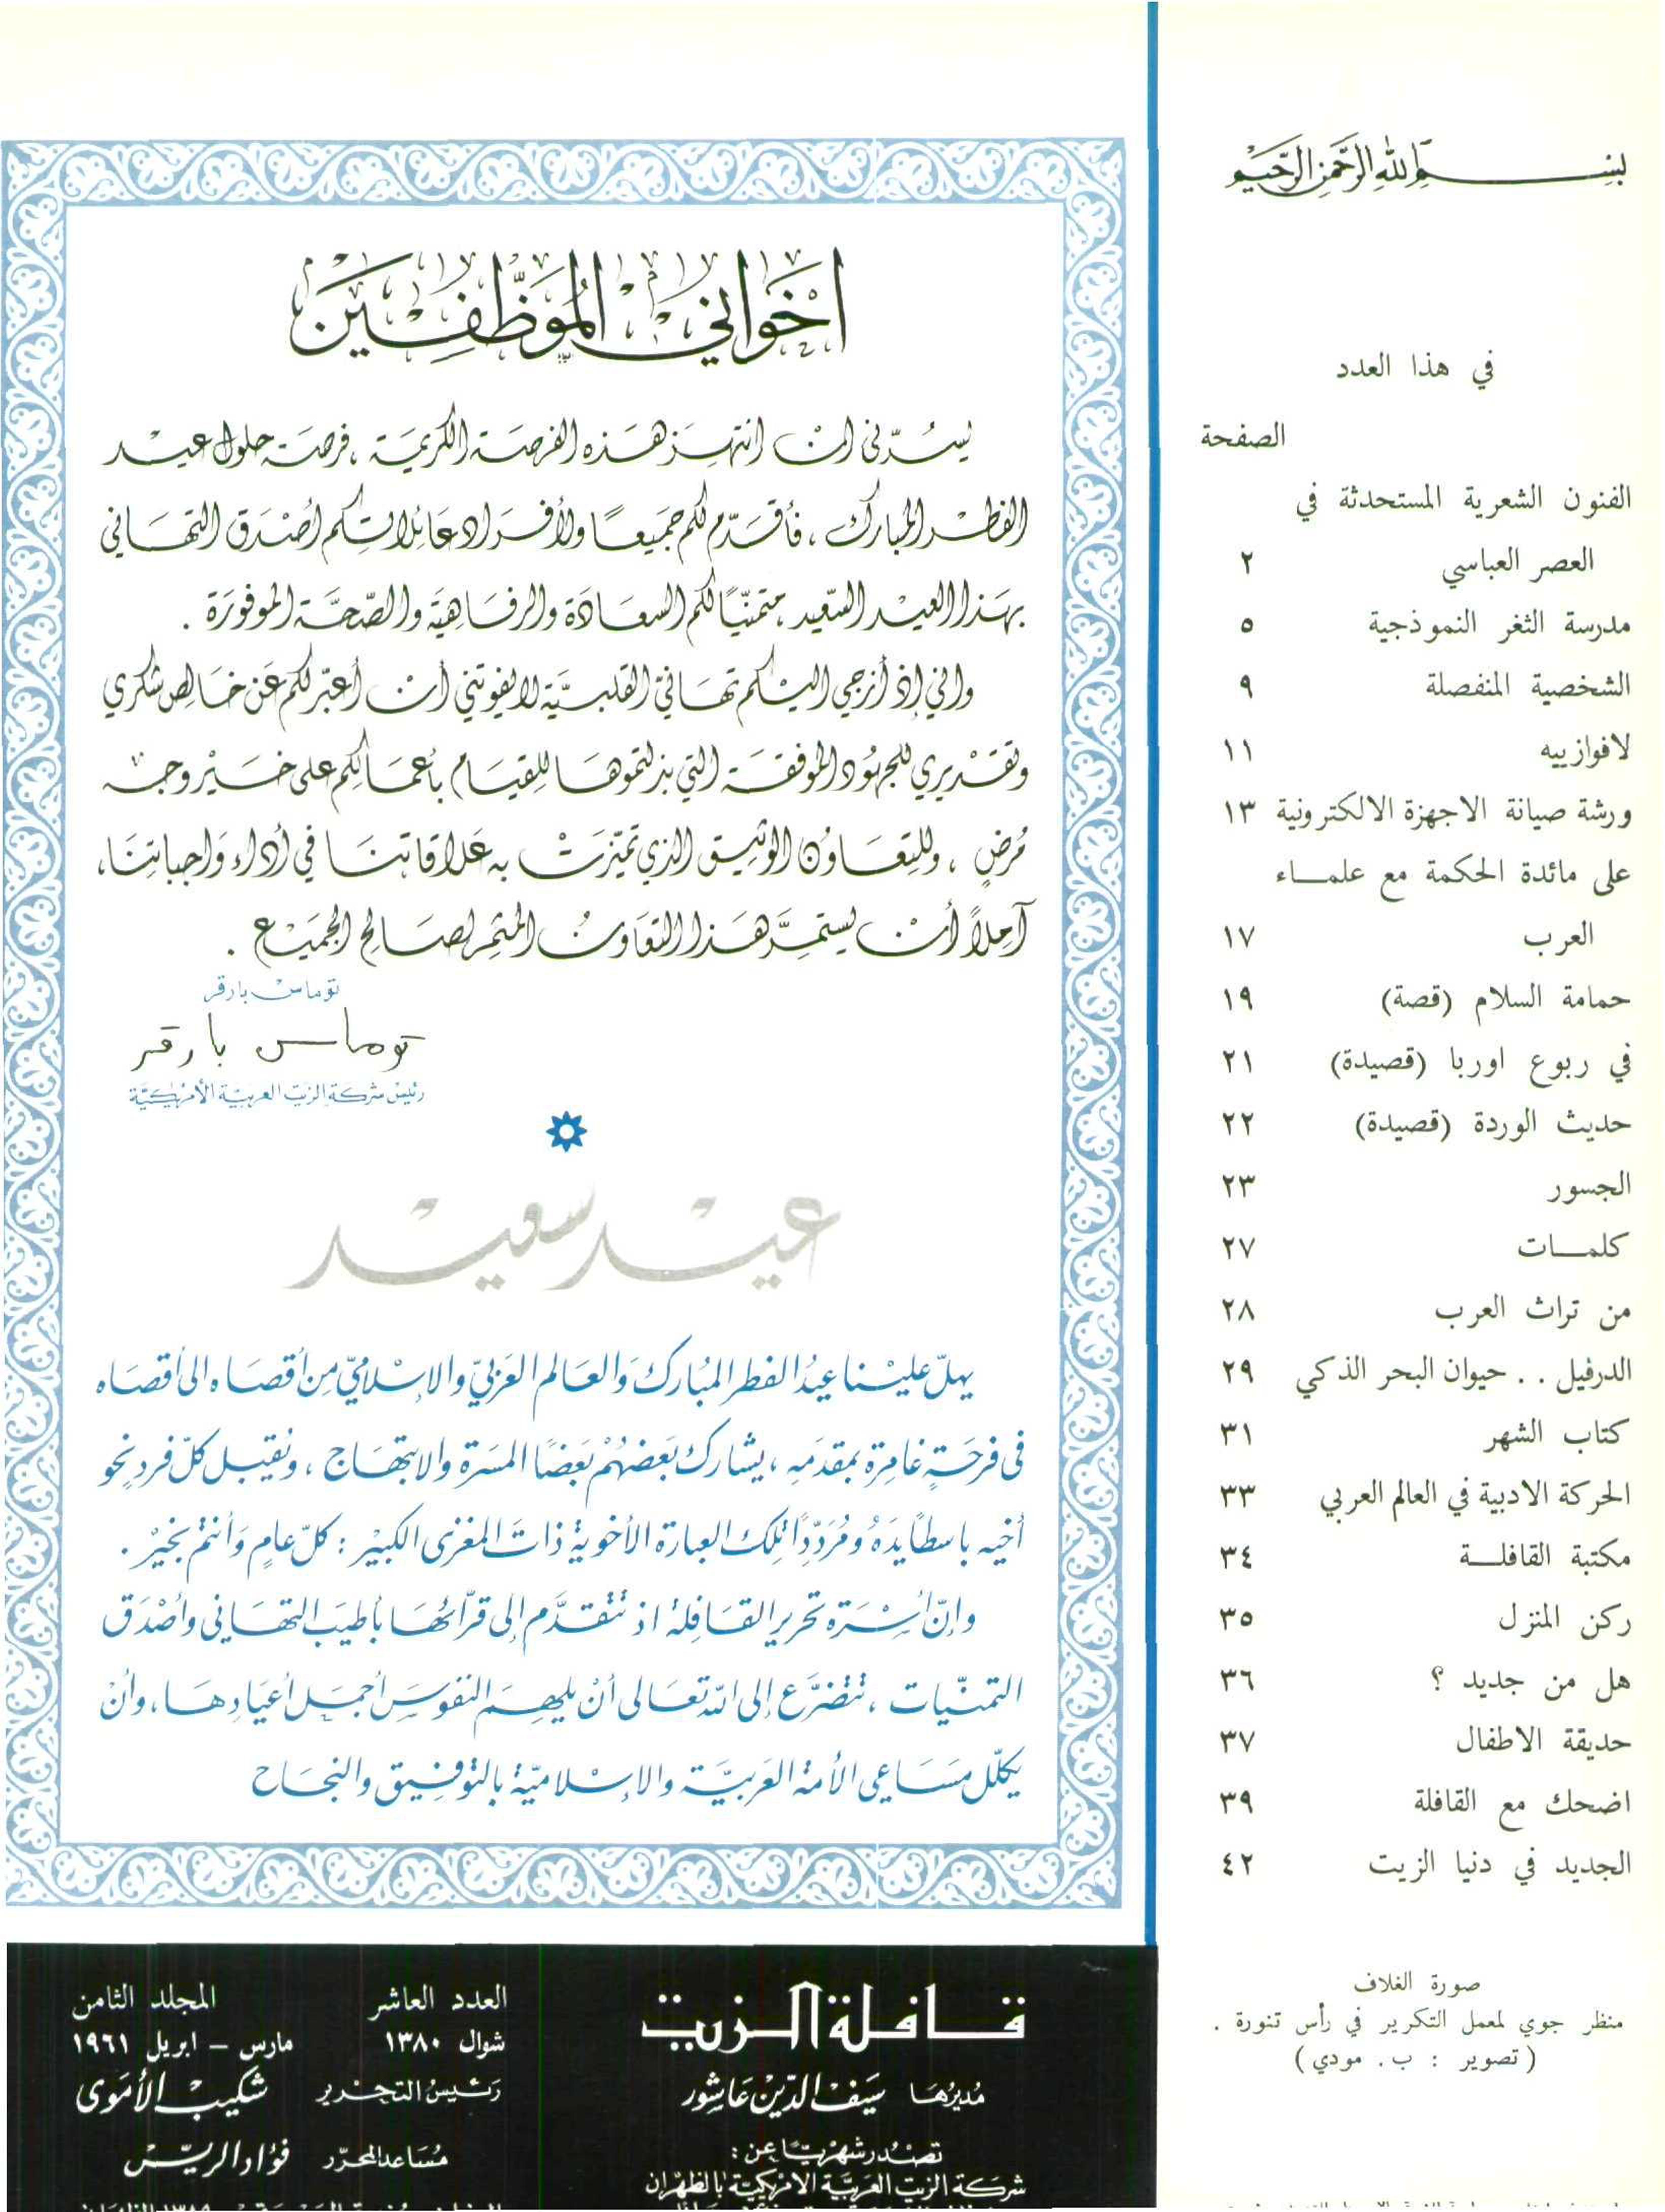 بسم الله الرحمن الرحيم
في هذا العدد
الصفحة
الفنون الشعرية المستحدثة في
العصر العباسي ٢
مدرسة الثغر النموذجية ٥
الشخصية المنفصلة ٩
لافوازييه ١١
ورشة صيانة الاجهزة الالكترونية ١٣
على مائدة الحكمة مع علمـــاء
العرب ١٧
حمامة السلام (قصة) ١٩
في ربوع اوربا (قصيدة) ٢١
حديث الوردة (قصيدة) ٢٢
الجسور ٢٣
كلمـــات ٢٧
من تراث العرب ٢٨
الدرفيل . . حيوان البحر الذكي ٢٩
كتاب الشهر ٣١
الحركة الادبية في العالم العربي ٣٣
مكتبة القافلـــة ٣٤
ركن المنزل ٣٥
هل من جديد ؟ ٣٦
حديقة الاطفال ٣٧
اضحك مع القافلة ٣٩
الجديد في دنيا الزيت ٤٢
صورة الغلاف
منظر جوي لمعمل التكرير في رأس تنورة .
( تصوير : ب . مودي )
اخَواني المُوَظَّفِين
يسُرّني أن انتهز هذه الفرصَة الكريمَة ، فرصَة حلول عيد
الفطر المبارك ، فأقدّم لكم جَميعًا ولأفراد عَائلاتكم أصْدَق التهَاني
بهَذا العيد السّعيد ، متمنّيًا لكم السعَادَة والرفاهيَة والصّحَّة الموفورَة .
واني إذ أزجي اليكم تهَانيّ القلبيَّة لا يفوتني أن أعبّر لكم عَن خَالِص شكري
وتقديري للجهُود الموفقَة التي بذلتموهَا للقيَام بأعمَالكم على خَيْر وجه
مُرضٍ ، وللتعَاوُن الوثيق الذي تميّزت به عَلاقاتنَا في أداء وَاجباتنَا ،
آمِلاً أن يستمرَّ هَذا التعَاون المثمر لصَالح الجميع .
توماس بارقر
توماس بارقر
رئيس شركة الزيت العربيّة الأمريكيّة
عيد سعيد
يهلّ عليْنا عيدُ الفطر المُبارك وَالعَالم العَرَبيّ والإسْلاميّ مِن أقصَاه الى أقصَاه
في فرحَةٍ غامِرة بمقدَمِه ، يشارك بَعضهُمْ بَعضًا المسَرة والابتهَاج ، وَيُقبل كلّ فردٍ نحو
أخيه باسطًا يدَهُ ومُرَدّدًا تلك العبارة الأخوية ذات المغزى الكبيْر : كلّ عامٍ وَأنتم بخيْر .
وإنّ أسْرَة تحرير القَافِلة اذ تتقدَّم إلى قرّائهَا بأطيَب التهَاني وأصْدَق
التمنّيات ، تتضرَّع إلى الله تعَالى أنْ يلهِمَ النفوسَ أجمل أعيَادِهَا ، وأنْ
يكلّل مسَاعي الأمة العَربيَّة والإسْلاميّة بالتوفيق والنجَاح
قافلة الزيت
مُديرُهَا سَيف الدّين عَاشور
تصْدُر شهْريًّا عَن :
شركة الزيت العَربيَّة الامريكيّة بالظهْران
العدد العاشر المجلد الثامن
شوال ١٣٨٠ مارس – ابريل ١٩٦١
رَئيسُ التحْرير شكيب الأمَوى
مُسَاعد المحرّر فؤاد الريّس